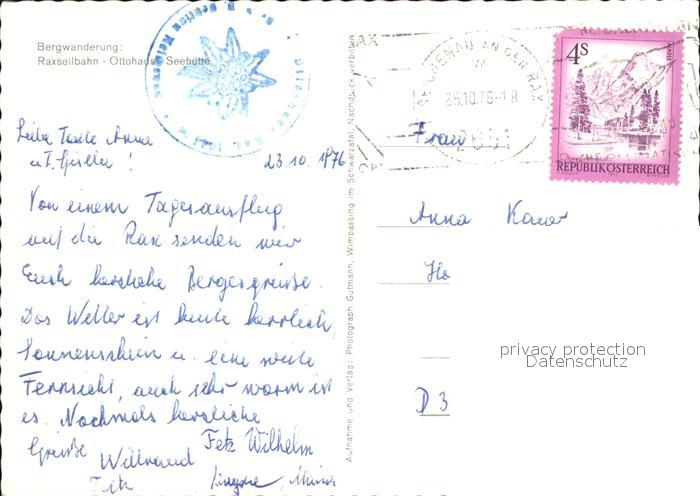 Bergwanderung:
Raxseilbahn - Ottohaus - Seehütte
Liebe Tante Anna
u. T. !
23.10.1976
Von einem Tagesausflug
auf die Rax senden wir
Euch herzliche Bergesgrüsse.
Das Wetter ist heute herrlich
Sonnenschein u. eine weite
Fernsicht, auch sehr warm ist
es. Nochmals herzliche
Grüße Willtraud Fetz Wilhelm
Fritz
Aufnahme und Verlag: Photograph Gutmann, Wimpassing im Schwarzatal, Nachdruck verboten
RAX
REICHENAU AN DER RAX
25.10.76-18
2651
4S
REPUBLIK ÖSTERREICH
Frau
Anna Kauer
Ho
D 3
privacy protection
Datenschutz